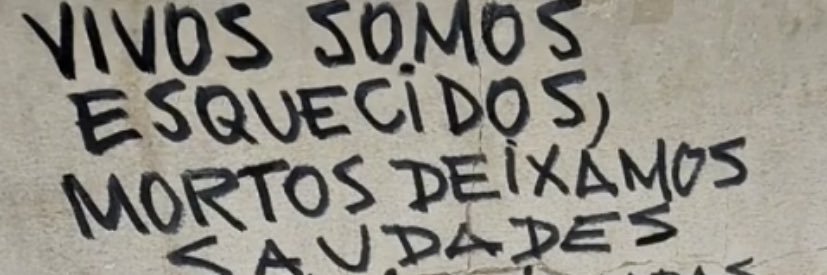 VIVOS SOMOS
ESQUECIDOS,
MORTOS DEIXAMOS
SAUDADES